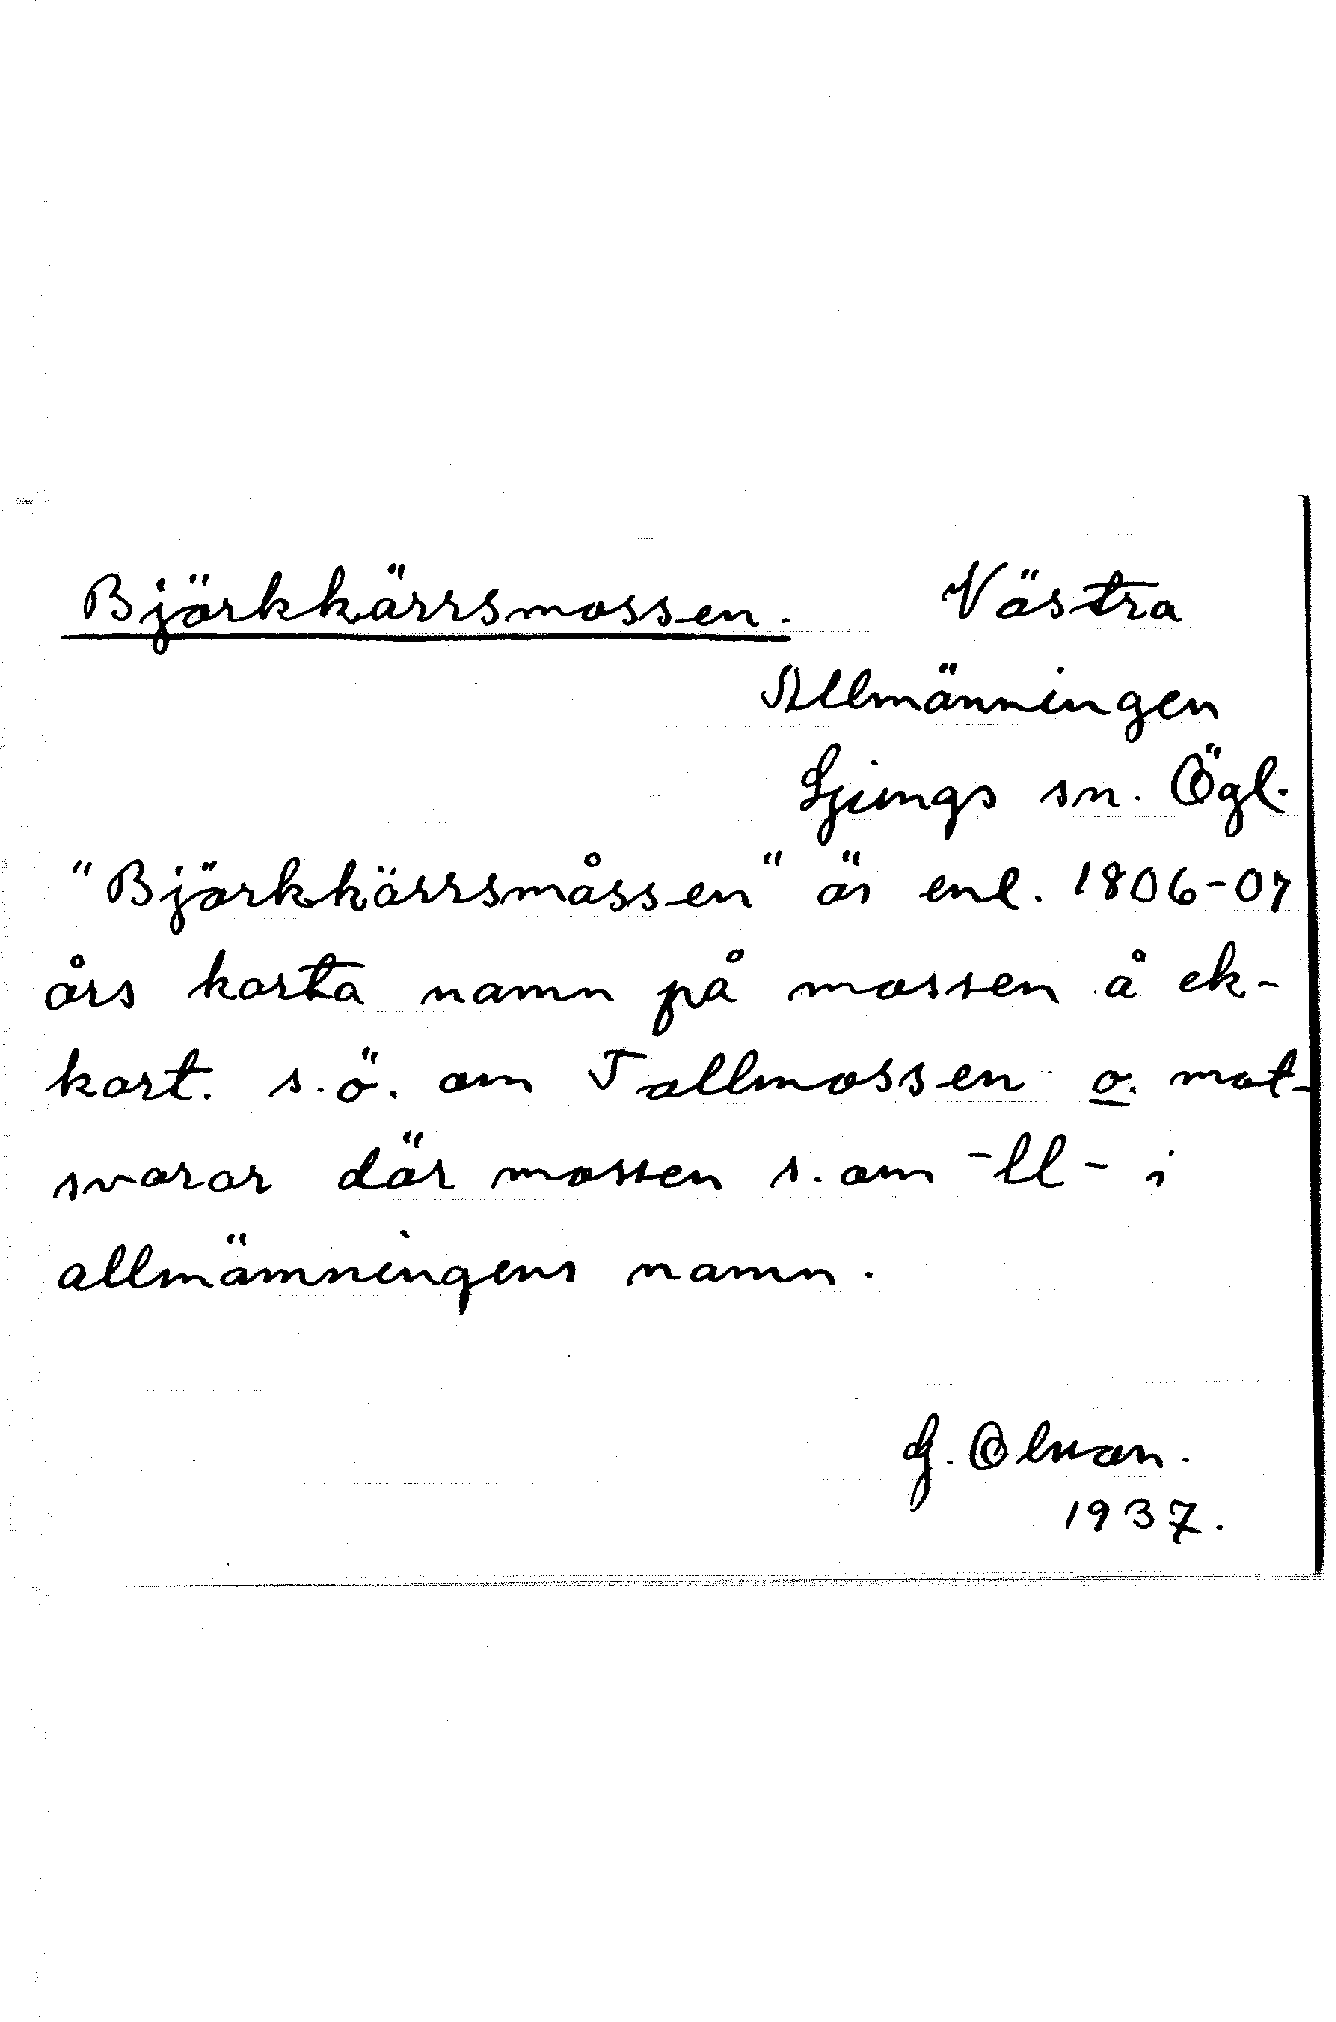 Björkkärrsmossen. Västra
Allmänningen
Ljungs sn. Ögl.
"Björkkärrsmåssen" är enl. 1806-07
års karta namn på mossen å ek-
kart. s.ö. om Tallmossen o. mot-
svarar där mossen s. om -ll- i
allmänningens namn.
G. Olsson.
1937.